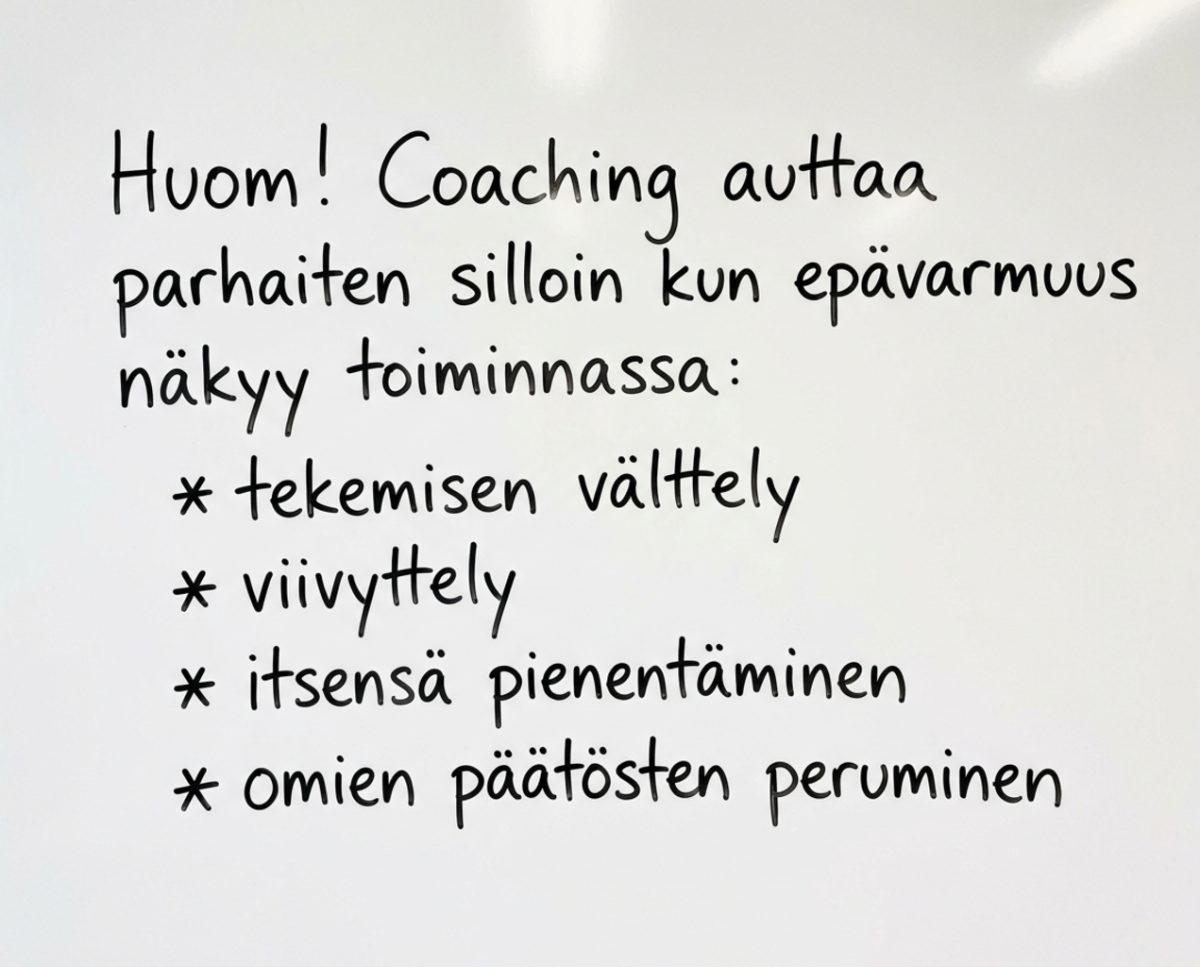 Huom! Coaching auttaa
parhaiten silloin kun epävarmuus
näkyy toiminnassa:
* tekemisen välttely
* viivyttely
* itsensä pienentäminen
* omien päätösten peruminen